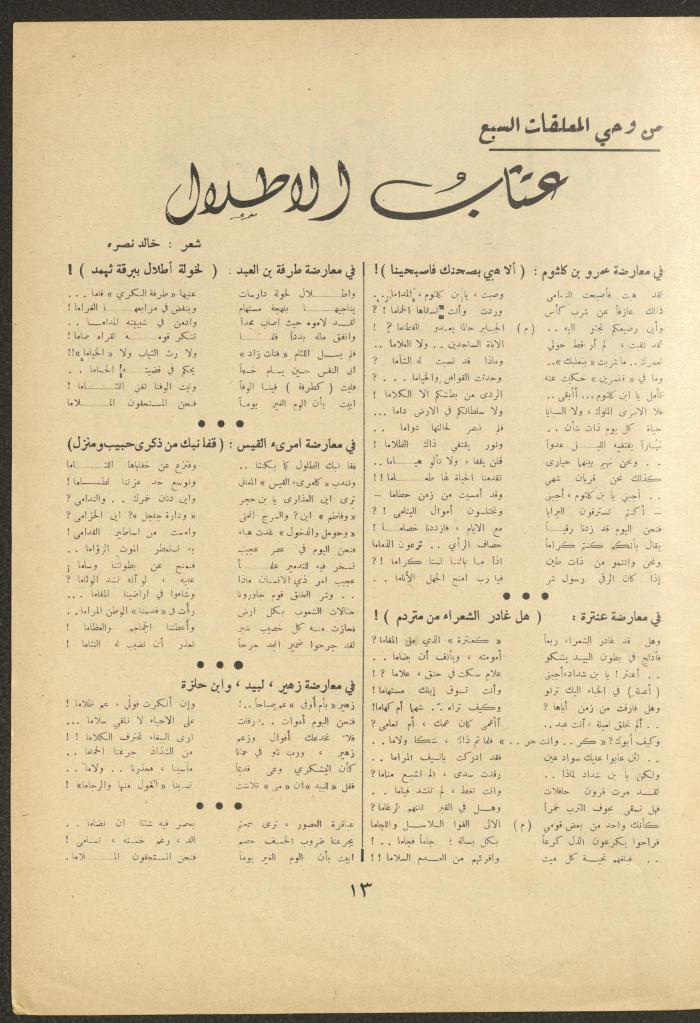 من وحي المعلقات السبع
عتاب الاطلال
شعر : خالد نصره
في معارضة عمرو بن كلثوم : ( ألا هبي بصحنك فاصبحينا ) !
لقد هبت فأصبحت الندامى وصبت ، يا بن كلثوم ، المداما . .
فذالك عازفاً عن شرب كأس وردت وأنت تسقاها الحماما ! ?
وأين رضيعكم تجثو اليه . . ( م ) الجبابر حالما يعدو الفطاما ? !
لقد نفيت ، لم أر قط حولي الاباة الساجدين . . ولا الغلاما . .
لعمرك . . ما شربت
وما في « قنصرين » حكيت عنه وجدت القوافل والخياما . . . ?
تأمل يا ابن كلثوم . . أأبقى . . الردى من بطشكم الا الكلاما !
فلا الاسرى الملوك ، ولا السبايا ولا سلطانكم في الارض داما . . .
حياة كل يوم ذات شأن . . فلم نبصر لحالتها دواما . .
نهاراً يقتفيه الليل عدواً ونور يقتفي ذاك الظلاما !
. . ونحن نهيم بينهما حيارى فلن يقفا ، ولا نألو هياما . .
كذلك نحن قربان شهي تقدمنا الحياة لها طعاما !!
. . أجبني يا بن كلثوم ، أجبني وقد أمسيت من زمن حطاما –
– أكنتم تسترقون البرايا وتختلسون أموال اليتامى ? !
فنحن اليوم قد زدنا رقياً مع الايام ، فازددنا خصاما !
يقال بأنكم كنتم كراماً حصاف الرأي . . ترعون الذماما
ونحن وانتمو من ذات طين اذاً ما بالنا لسنا كراما ! ?
إذا كان الرقي رسول شر فيا رب امنح الجهل الأناما . .
في معارضة عنترة : ( هل غادر الشعراء من متردم ) !
وهل قد غادر الشعراء ربعاً « كعنترة » الذي ملّ المقاما ?
فأدلج في بطون البيد يشكو أمومته ، ويأنف أن يضاما . .
. . أعنتر ! يا بن شداد، أجبني علام سكت في حنق ، علاما ?!
( أعبلة ) في الخباء اليك ترنو وأنت تسوق إبلك مستهاما!
وهل فارقت من زمن أباها ? وكيف تراه . . شهماً أم كهاما!
. . ألم تخلق لعبلة ، أنت عبد . . أأعمى كان عمك ، أم تعامى ?
وكيف أبوك? « كر . . وانت حر . . » فلما تم ذاك ، شكا ولاما . .
. . لئن عابوا عليك سواد عين فقد ادركت بالسيف المراما . .
ولكن يا بن شداد لماذا . . رقدت سدى ، الم تشبع مناما?
لقد مرت قرون حافلات وانت تغط ، لم تنشد قياما . .
فهل تسقى بجوف الترب خمراً وهل في القبر تلتهم الرغاما?
كأنك واحد من بعض قومي ( م ) الالى الفوا السلاسل واللجاما
فراحوا يكرعون الذل كرعاً بكل بسالة ؛ جاماً فجاما . . !
. . فبلغهم تحية كل ميت واقرئهم من العدم السلاما !!
في معارضة طرفة بن العبد : ( لخولة أطلال ببرقة ثهمد ) !
واطلال لخولة دارسات عليها « طرفة البكري » قاما . . .
يناجيها بلهجة مستهام وينفض في مرابعها الغراما !
لقد لاموه حيث اصاب مجداً وادمن في شبيبته المداما . .
وانفق ماله بدداً فلما تنكر قومه لقراه صاما !
فلم يسل اللثام « فتاة زاد » ولا رث الثياب ولا « الخياما »!!
ابي النفس حين يسام خسفاً يحكم في قضيته الحساما . .
فليت ( كطرفة ) فينا الوفاً وليت الوفنا تفني اللئاما !
ابيت بأن الوم الغير يوماً فنحن المستحقون الملاما
في معارضة امرىء القيس : ( قفا نبك من ذكرى حبيب ومنزل)
قفا نبك الطلول كما بكتنا . . ونفزع عن خفاياها اللثاما
ونندب « كامرىء القيس » المعالي ونوسع خد عزتنا لطاما !
ترى اين العذارى يا بن حجر واين دنان خمرك . . والندامى ?
« وفاطم » اين? والسرج المحلى « ودارة جلجل »? اين الخزامى ?
« وحومل والدخول » غدت هباء وامست من اساطير القدامى !
فنحن اليوم في عصر عجيب به نستمطر الموت الزؤاما . .
نسخر فيه للتدمير علماً فنمنح عن بطولتنا وساما !
عجيب امر ذي الانسان ماذا عليه ، لو أنه نشد الوئاما ?
. . وشر الخلق قوم جاورونا وشاءوا في اراضينا المقاما . . .
حثالات الشعوب بكل ارض رأت في « قدسنا » الوطن المراما . .
فحازت منه كل خصيب شبر وأعطتنا الجماجم والعظاما !
لقد جرحوا ضمير المجد جرحاً تعذر أن نصيب له التئاما !
في معارضة زهير ، لبيد ، وابن حلزة
زهير « بأم أوفى » عم صباحاً . .! وإن أنكرت قولي ، عم ظلاما !
فنحن اليوم أموات . . رفات على الاحياء لا نلقي سلاما . . .
فلا تخدعك أقوال وزعم ارى الببغاء تحترف الكلاما ! !
زهير ، ورب ناو في حمانا من الشذاذ جرعنا الحماما . .
كأن اليشكري وعى قديماً مآسينا ، فحذرنا . . ولاما . .
فقل « للبيد » ان « منى » تلاشت نسينا « الغول منها والرجاما » !
عباقرة العصور ، ترى سمعتم بعصر فيه شئنا ان نضاما . .
يجرعنا ضروب الخسف خصم الد ، رغم خسته ، تسامى !
ابيت بأن الوم الغير يوماً فنحن المستحقون الملاما .
١٣